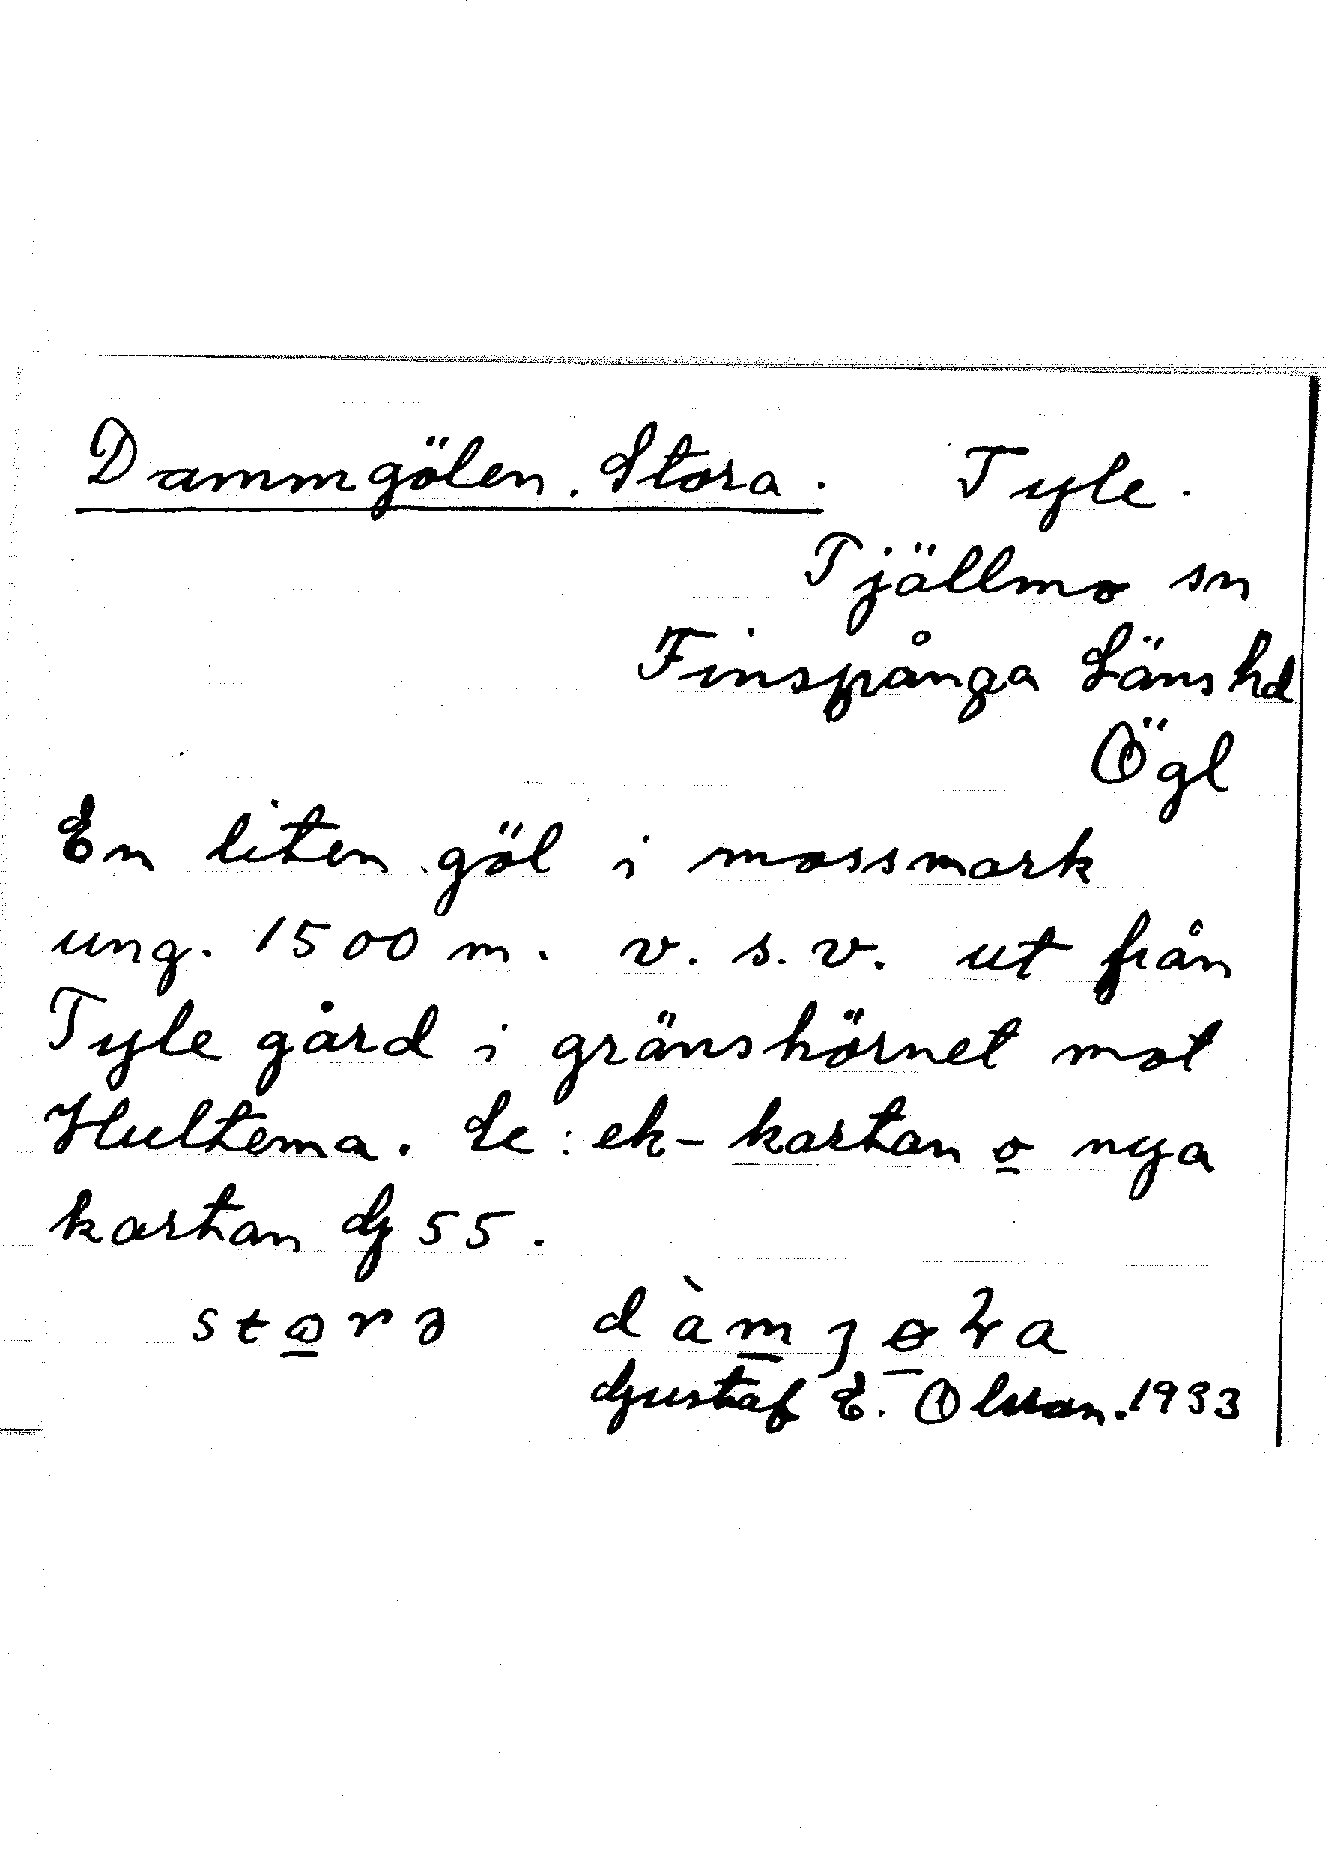 Dammgölen. Stora. Tyle.
Tjällmo sn
Finspånga Länshd
Ögl
En liten göl i mossmark
ung. 1500 m. v. s. v. ut från
Tyle gård i gränshörnet mot
Hultema. Se: ek-kartan o nya
kartan G 55.
Gustaf E. Olsson. 1933